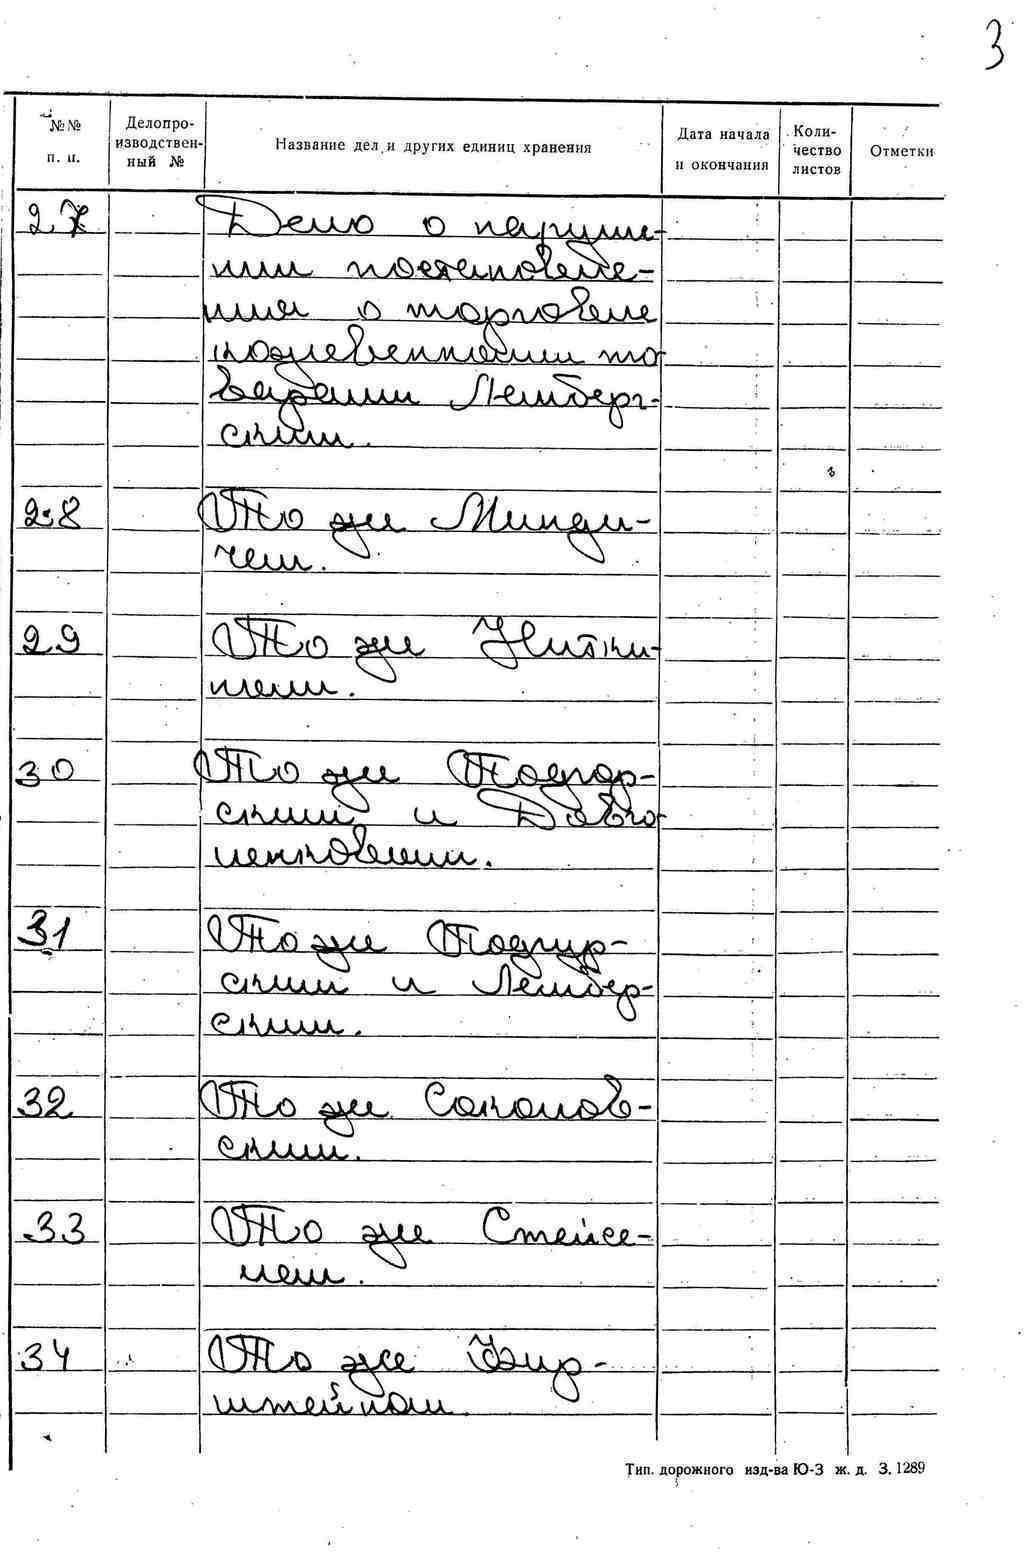 3
№№ п. п.
Делопро-
изводствен-
ный №
Название дел и других единиц хранения
Дата начала
и окончания
Коли-
чество
листов
Отметки
27 Дело о наруше-
нии постановле-
ния о торговле
кожевенными то-
варами Лемберг-
ским.
28 То же Минди-
чем.
29 То же
30 То же Подгор-
ским и Довго-
31 То же Подгур-
ским и Лембер-
ским.
32 То же Соколов-
ским.
33 То же Стейсе-
лем.
34 То же
штейном.
Тип. дорожного изд-ва Ю-З ж. д. З. 1289